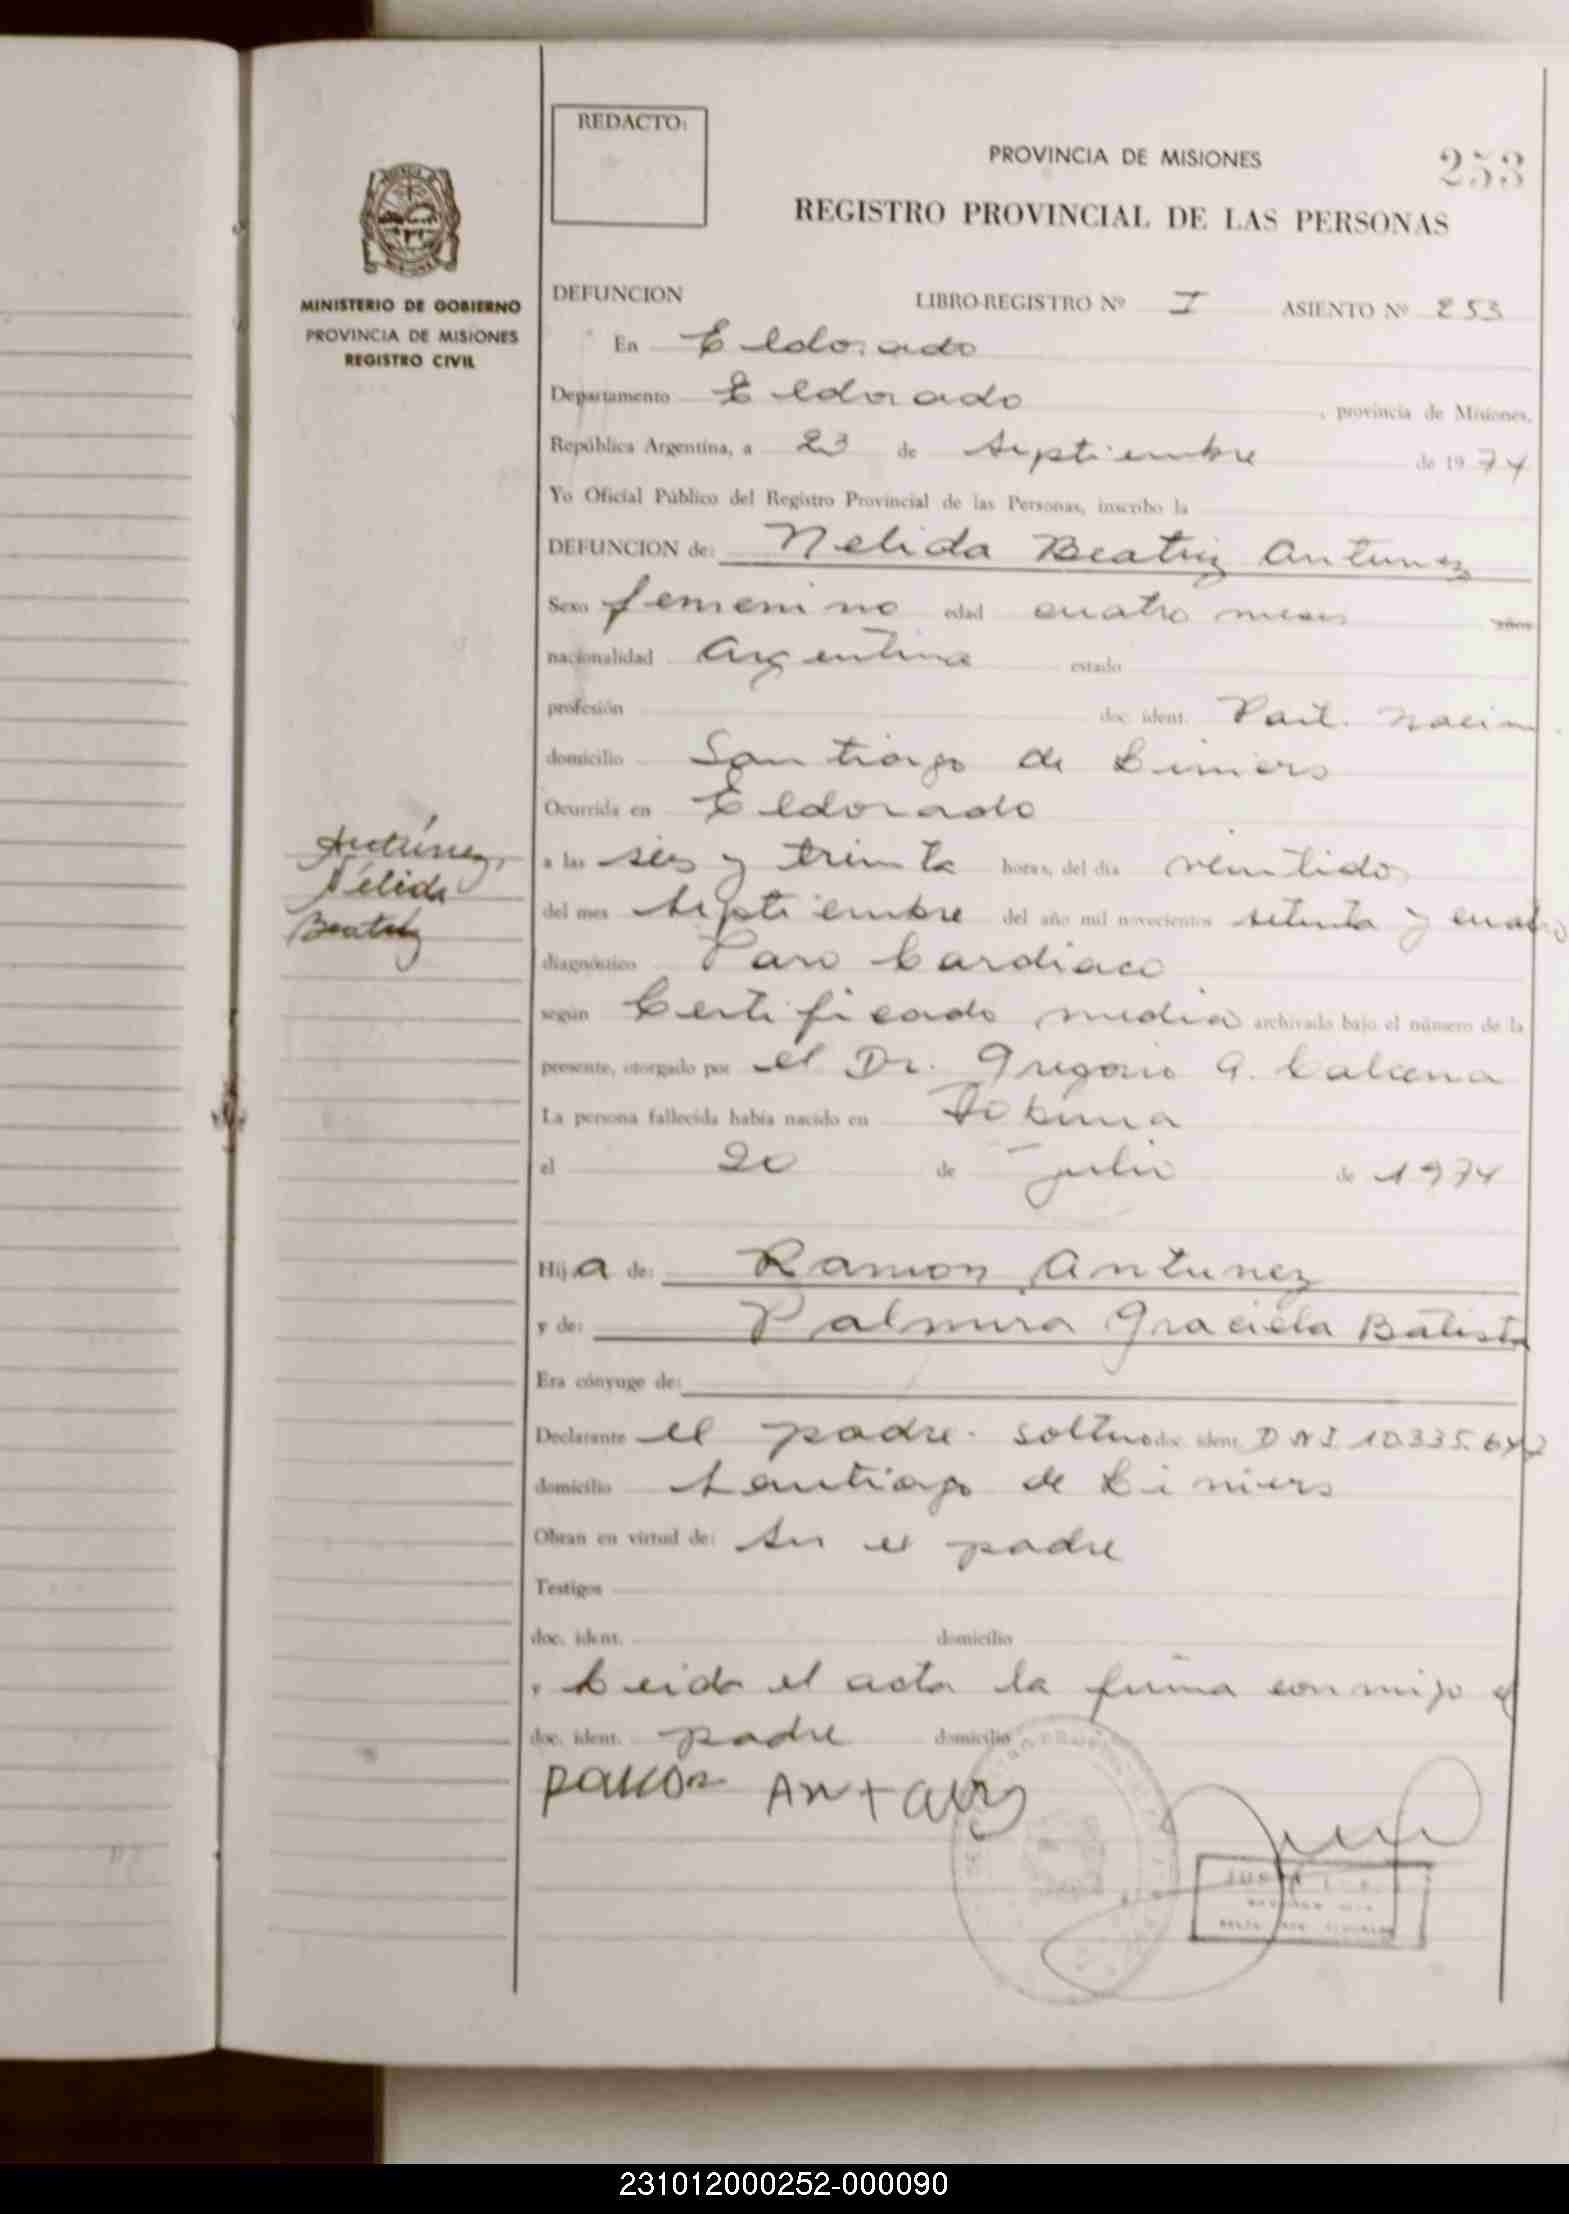 REDACTO:
PROVINCIA DE MISIONES
253
REGISTRO PROVINCIAL DE LAS PERSONAS
MINISTERIO DE GOBIERNO
PROVINCIA DE MISIONES
REGISTRO CIVIL
DEFUNCION LIBRO-REGISTRO Nº I ASIENTO Nº 253
En Eldorado
Departamento Eldorado , provincia de Misiones,
República Argentina, a 23 de septiembre de 1974
Yo Oficial Público del Registro Provincial de las Personas, inscribo la
DEFUNCION de: Nelida Beatriz Antunez
Sexo femenino edad cuatro meses años
nacionalidad Argentina estado
profesión doc. ident. Part. Nacim.
domicilio Santiago de Liniers
Ocurrida en Eldorado
Antúnez,
Nélida
Beatriz
a las seis y treinta horas, del día veintidos
del mes septiembre del año mil novecientos setenta y cuatro
diagnóstico Paro Cardiaco
según Certificado medico archivado bajo el número de la
presente, otorgado por el Dr. Gregorio G.
La persona fallecida había nacido en
el 20 de Julio de 1974
Hija de: Ramon Antunez
y de: Palmira Graciela Batista
Era cónyuge de:
Declarante el padre. soltero doc. ident. DNI. 10.335.6
domicilio Santiago de Liniers
Obran en virtud de: ser el padre
Testigos
doc. ident. domicilio
y Leida el acta la firma conmigo el
doc. ident. padre domicilio
231012000252-000090